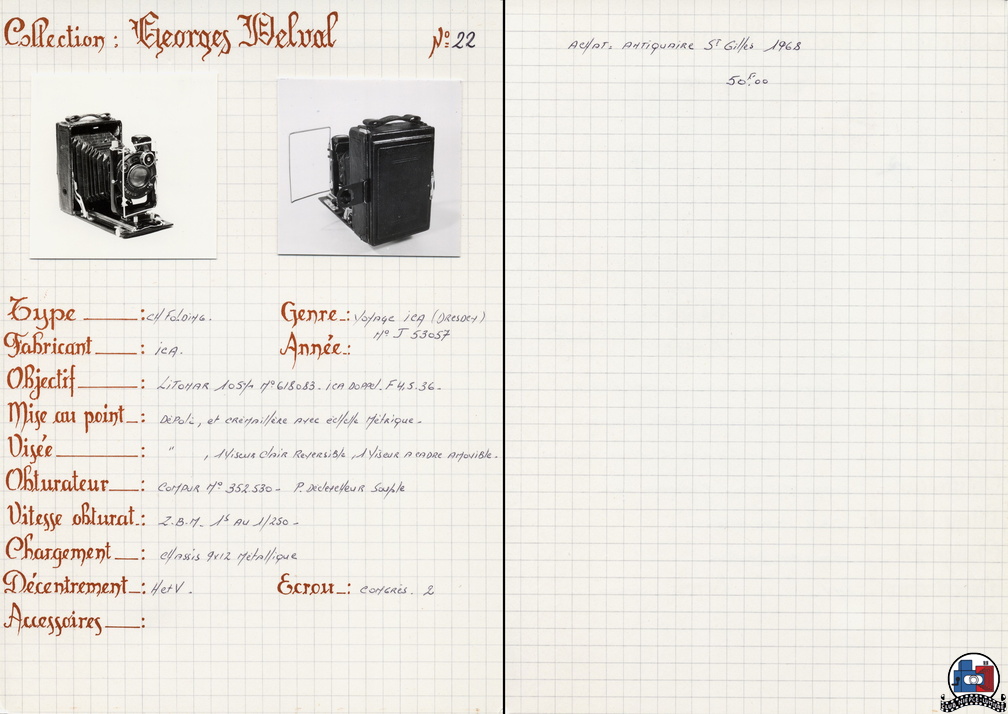 Collection : Georges Delval
No 22
Type : CH Folding.
Genre : Voyage ICA (Dresden)
No J 53057
Fabricant : ICA.
Année :
Objectif : Litonar 105 No 618083 - ICA Doppel. F 4,5.36 -
Mise au point : Dépoli, et crémaillère avec échelle métrique -
Visée : " , 1 Viseur clair Reversible, 1 Viseur A cadre Amovible -
Obturateur : Compur No 352.530 - P. Déclencheur Souple
Vitesse obturat. : Z.B.M. 1s AU 1/250 -
Chargement : Chassis 9x12 Métallique
Décentrement : H et V.
Ecrou : Congrès. 2
Accessoires :
Achat : Antiquaire St Gilles 1968
50F.00